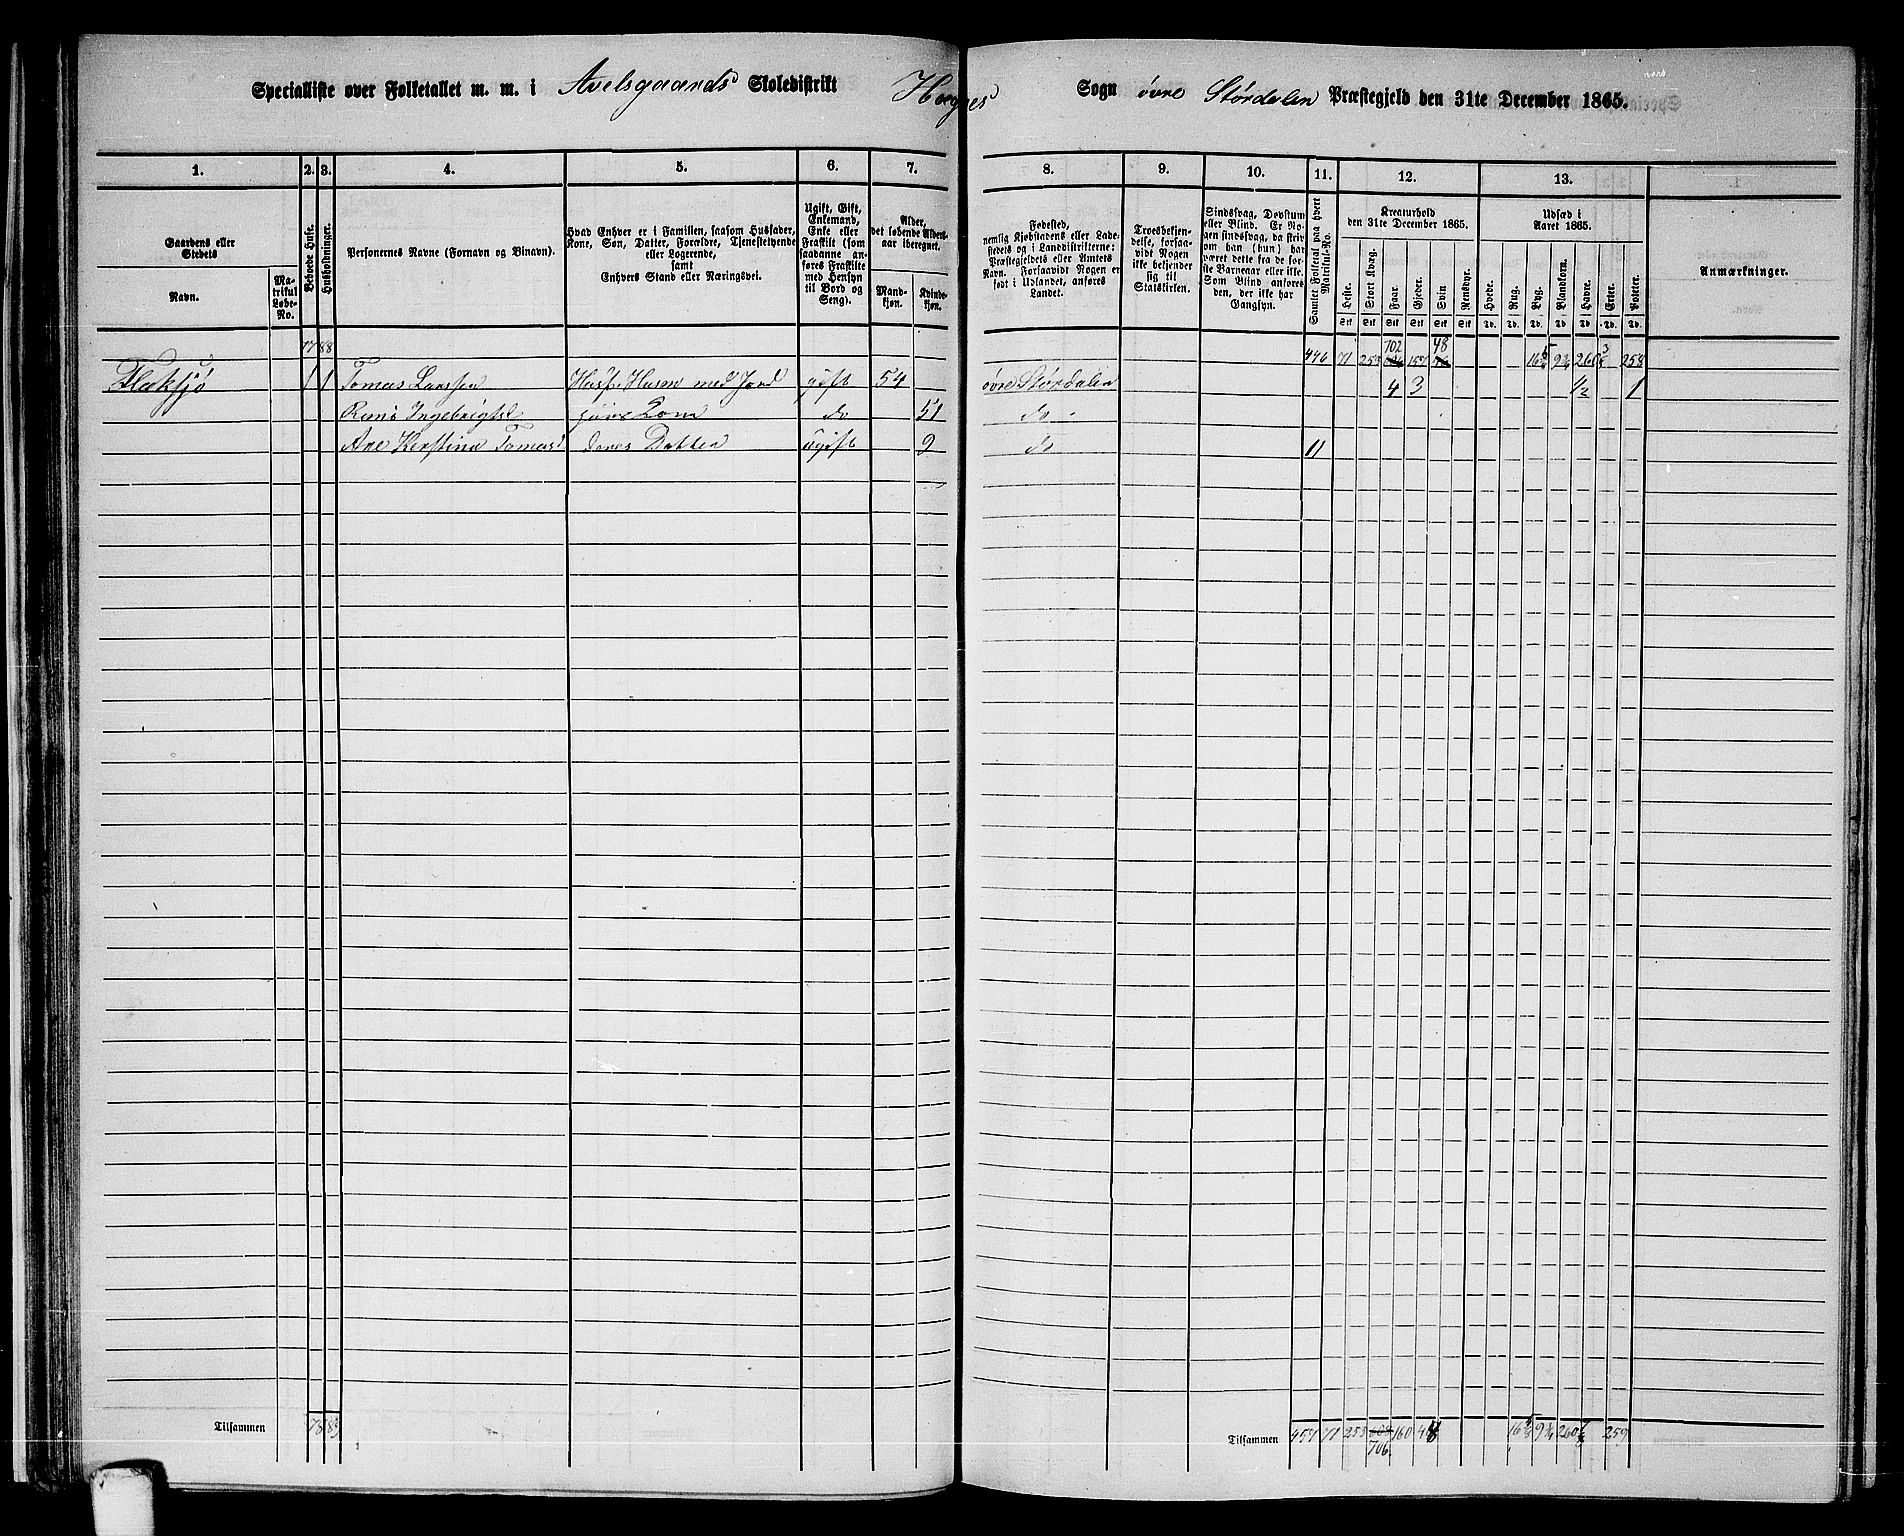 Specialliste over Folketallet m. m. i Avelsgaards Skoledistrikt Hegres Sogn øvre Størdalen Præstegjeld den 31te December 1865.
1. 2. 3. 4. 5. 6. 7. 8. 9. 10. 11. 12. 13. 1.
Gaardens eller Stedets
Navn.
Matrikul Løbe-No.
Beboede Huse.
Husholdninger.
Personernes Navne (Fornavn og Binavn).
Hvad Enhver er i Familien, saasom Husfader, Kone, Søn, Datter, Forældre, Tjenestetyende eller Logerende,
samt
Enhvers Stand eller Næringsvei.
Ugift, Gift, Enkemand, Enke eller Fraskilt (som saadanne anføres Fraskilte med Hensyn til Bord og Seng).
Alder, det løbende Alders-aar iberegnet.
Mandkjøn. Kvindekjøn.
Fødested, nemlig Kjøbstadens eller Ladestedets og i Landdistrikterne: Præstegjeldets eller Amtets Navn. Forsaavidt Nogen er født i Udlandet, anføres Landet.
Troesbekjendelse, forsaavidt Nogen ikke bekjender sig til Statskirken.
Sindssvag, Døvstum eller Blind. Er Nogen sindssvag, da skriv om han (hun) har været dette fra de første Barneaar eller ikke. Som Blind anføres den, der ikke har Gangsyn.
Samlet Folketal paa hvert Matrikul-No.
Kreaturhold den 31te December 1865.
Heste. Stort Kvæg. Faar. Gjeder. Svin Rensdyr.
Stk Stk Stk Stk Stk Stk
Udsæd i Aaret 1865.
Hvede. Rug. Byg. Blandkorn. Havre. Erter. Poteter.
Td. Td. Td. Td. Td. Td. Td.
Anmærkninger.
77 88 446 71 253 702 157 48 258
Flaksjø 1 1 Tomas Larssen Husf. Husm med Jord gift 54 øvre Størdalen 4 3 1/2 1
Ingebrigtsd do 51 do
Ane Kerstina Tomasd deres Datter ugift 9 do 11
Tilsammen 78 89
Tilsammen 457 71 253 706 160 48 259